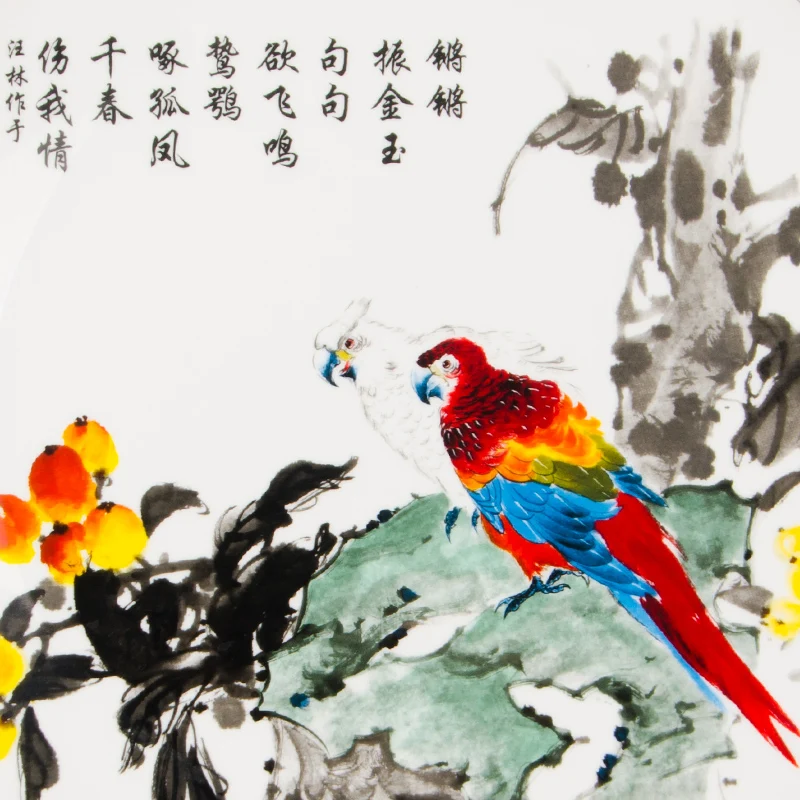 锵锵
振金玉
句句
欲飞鸣
鸷鹗
啄孤凤
千春
伤我情
汪林作于